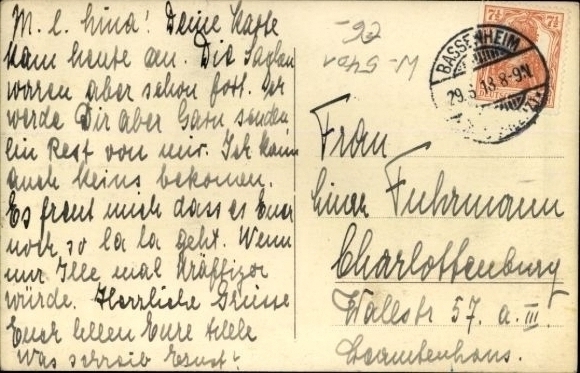 M. l. Lina! Deine Karte
kam heute an. Die Sachen
waren aber schon fort. Ich
werde Dir aber Garn senden
ein Rest von mir. Ich kann
auch keins bekomen.
Es freut mich dass es Euch
noch so la la geht. Wenn
nur Ille mal kräftiger
würde. Herrliche Grüsse
Euch allen Eure
Was schreib Ernst?
7½ 7½
BASSENHEIM
29.6.18.8-9N
Frau
Lina Fuhrmann
Charlottenburg
Wallstr 57. a. III.
Beamtenhaus.